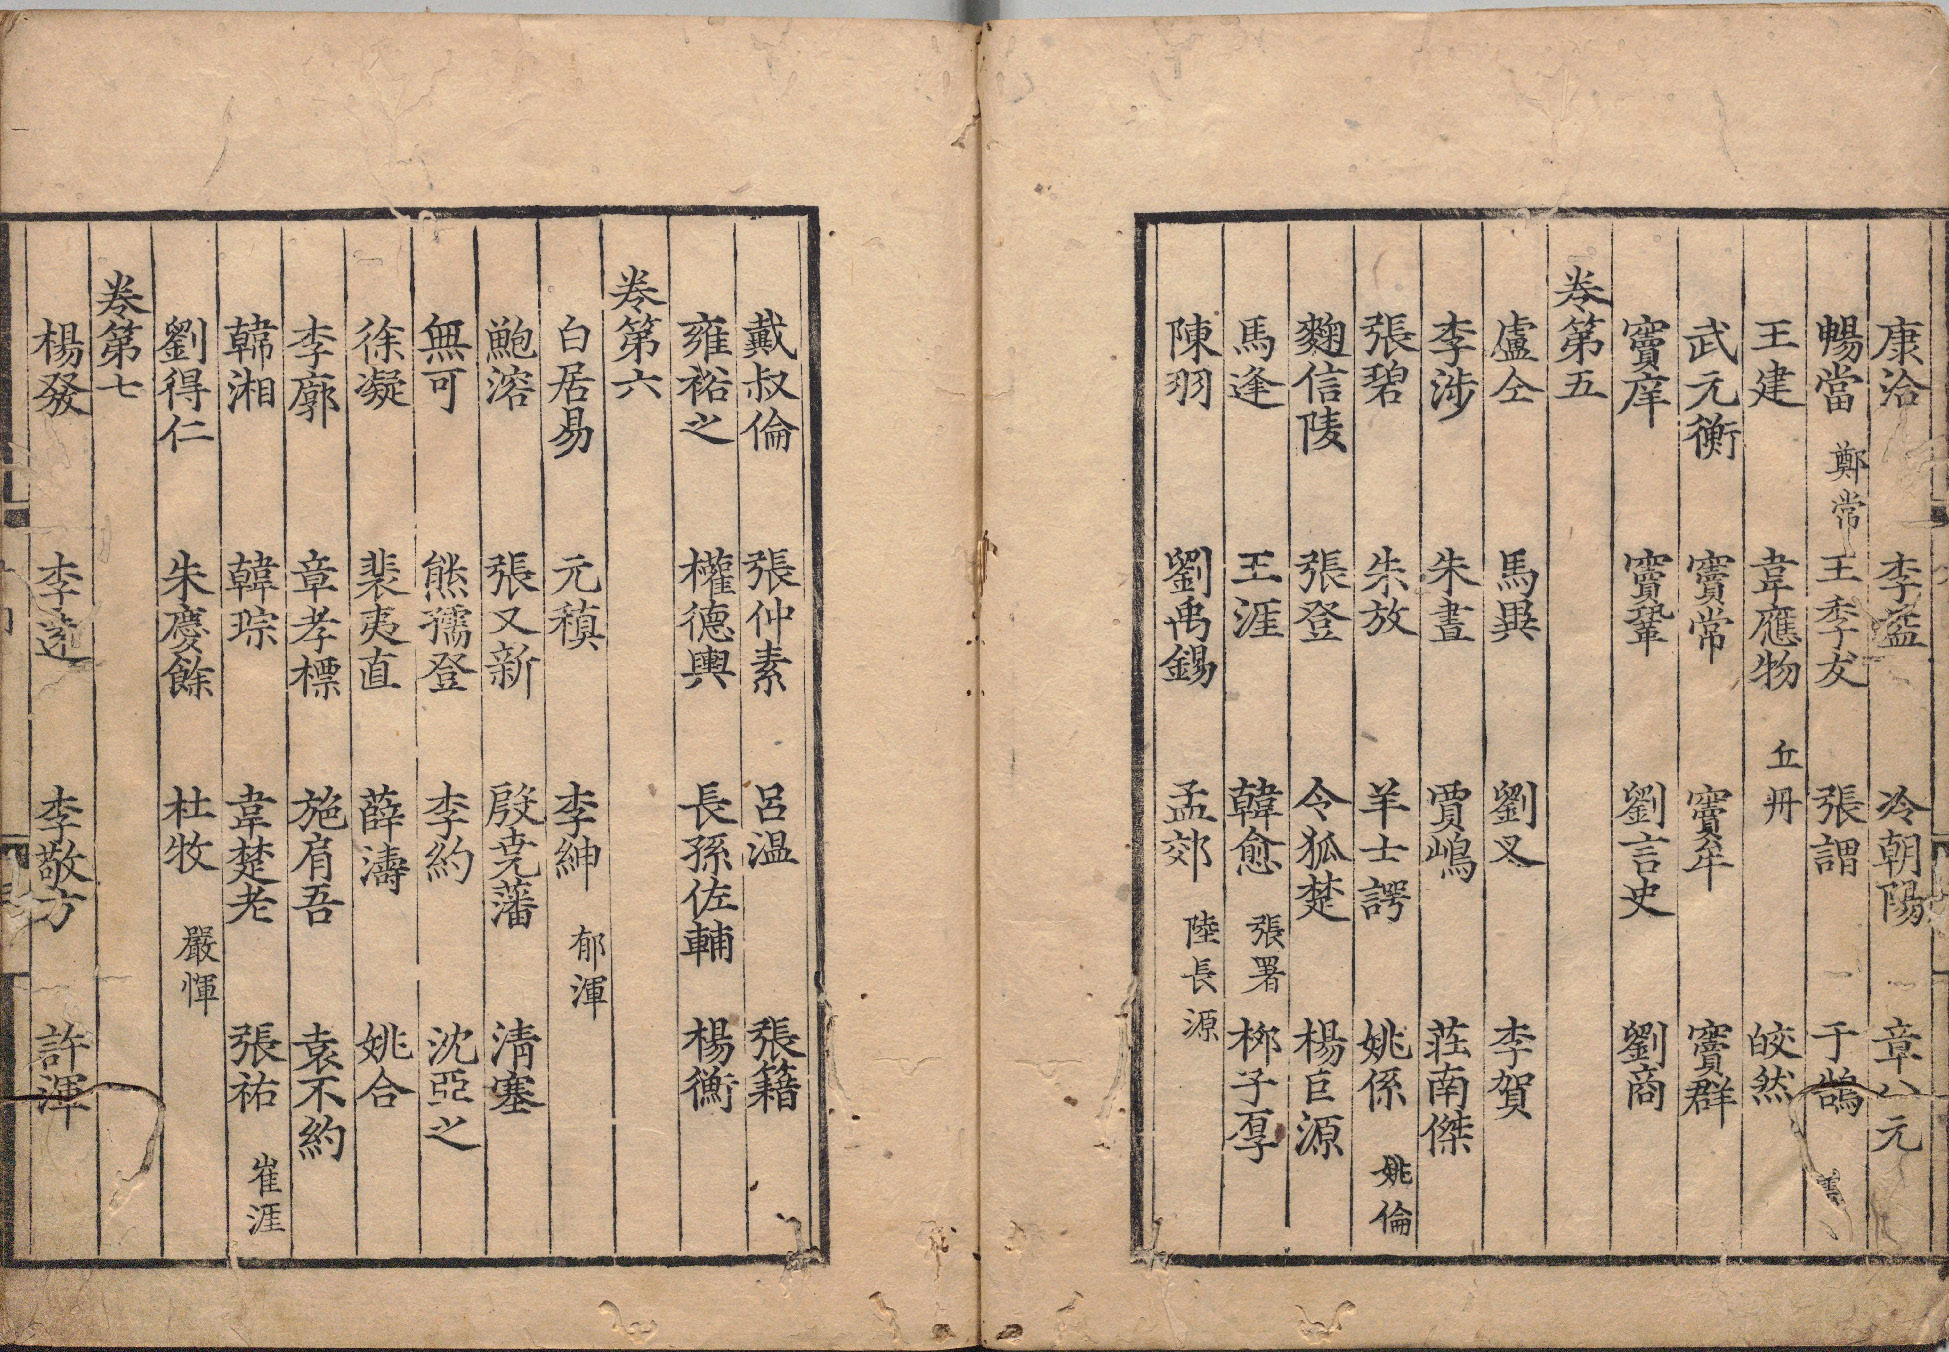 康洽 李益 冷朝陽 章八元
暢當 鄭常 王季友 張謂 于鵠
王建 韋應物 丘丹 皎然
武元衡 竇常 竇牟 竇群
竇庠 竇鞏 劉言史 劉商
卷第五
盧仝 馬異 劉叉 李賀
李涉 朱晝 賈島 莊南傑
張碧 朱放 羊士諤 姚係 姚倫
麴信陵 張登 令狐楚 楊巨源
馬逢 王涯 韓愈 張署 柳子厚
陳羽 劉禹錫 孟郊 陸長源
戴叔倫 張仲素 呂溫 張籍
雍裕之 權德輿 長孫佐輔 楊衡
卷第六
白居易 元稹 李紳 郁渾
鮑溶 張又新 殷堯藩 清塞
無可 熊孺登 李約 沈亞之
徐凝 裴夷直 薛濤 姚合
李廓 章孝標 施肩吾 袁不約
韓湘 韓琮 韋楚老 張祐 崔涯
劉得仁 朱慶餘 杜牧 嚴惲
卷第七
楊發 李遠 李敬方 許渾